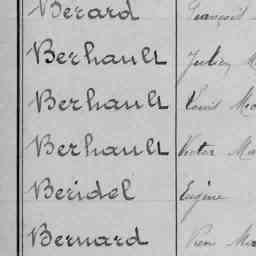 Berard François
Berhault Julien M
Berhault Louis Mar
Berhault Victor Mar
Beridel Eugène
Bernard Pierre Mar